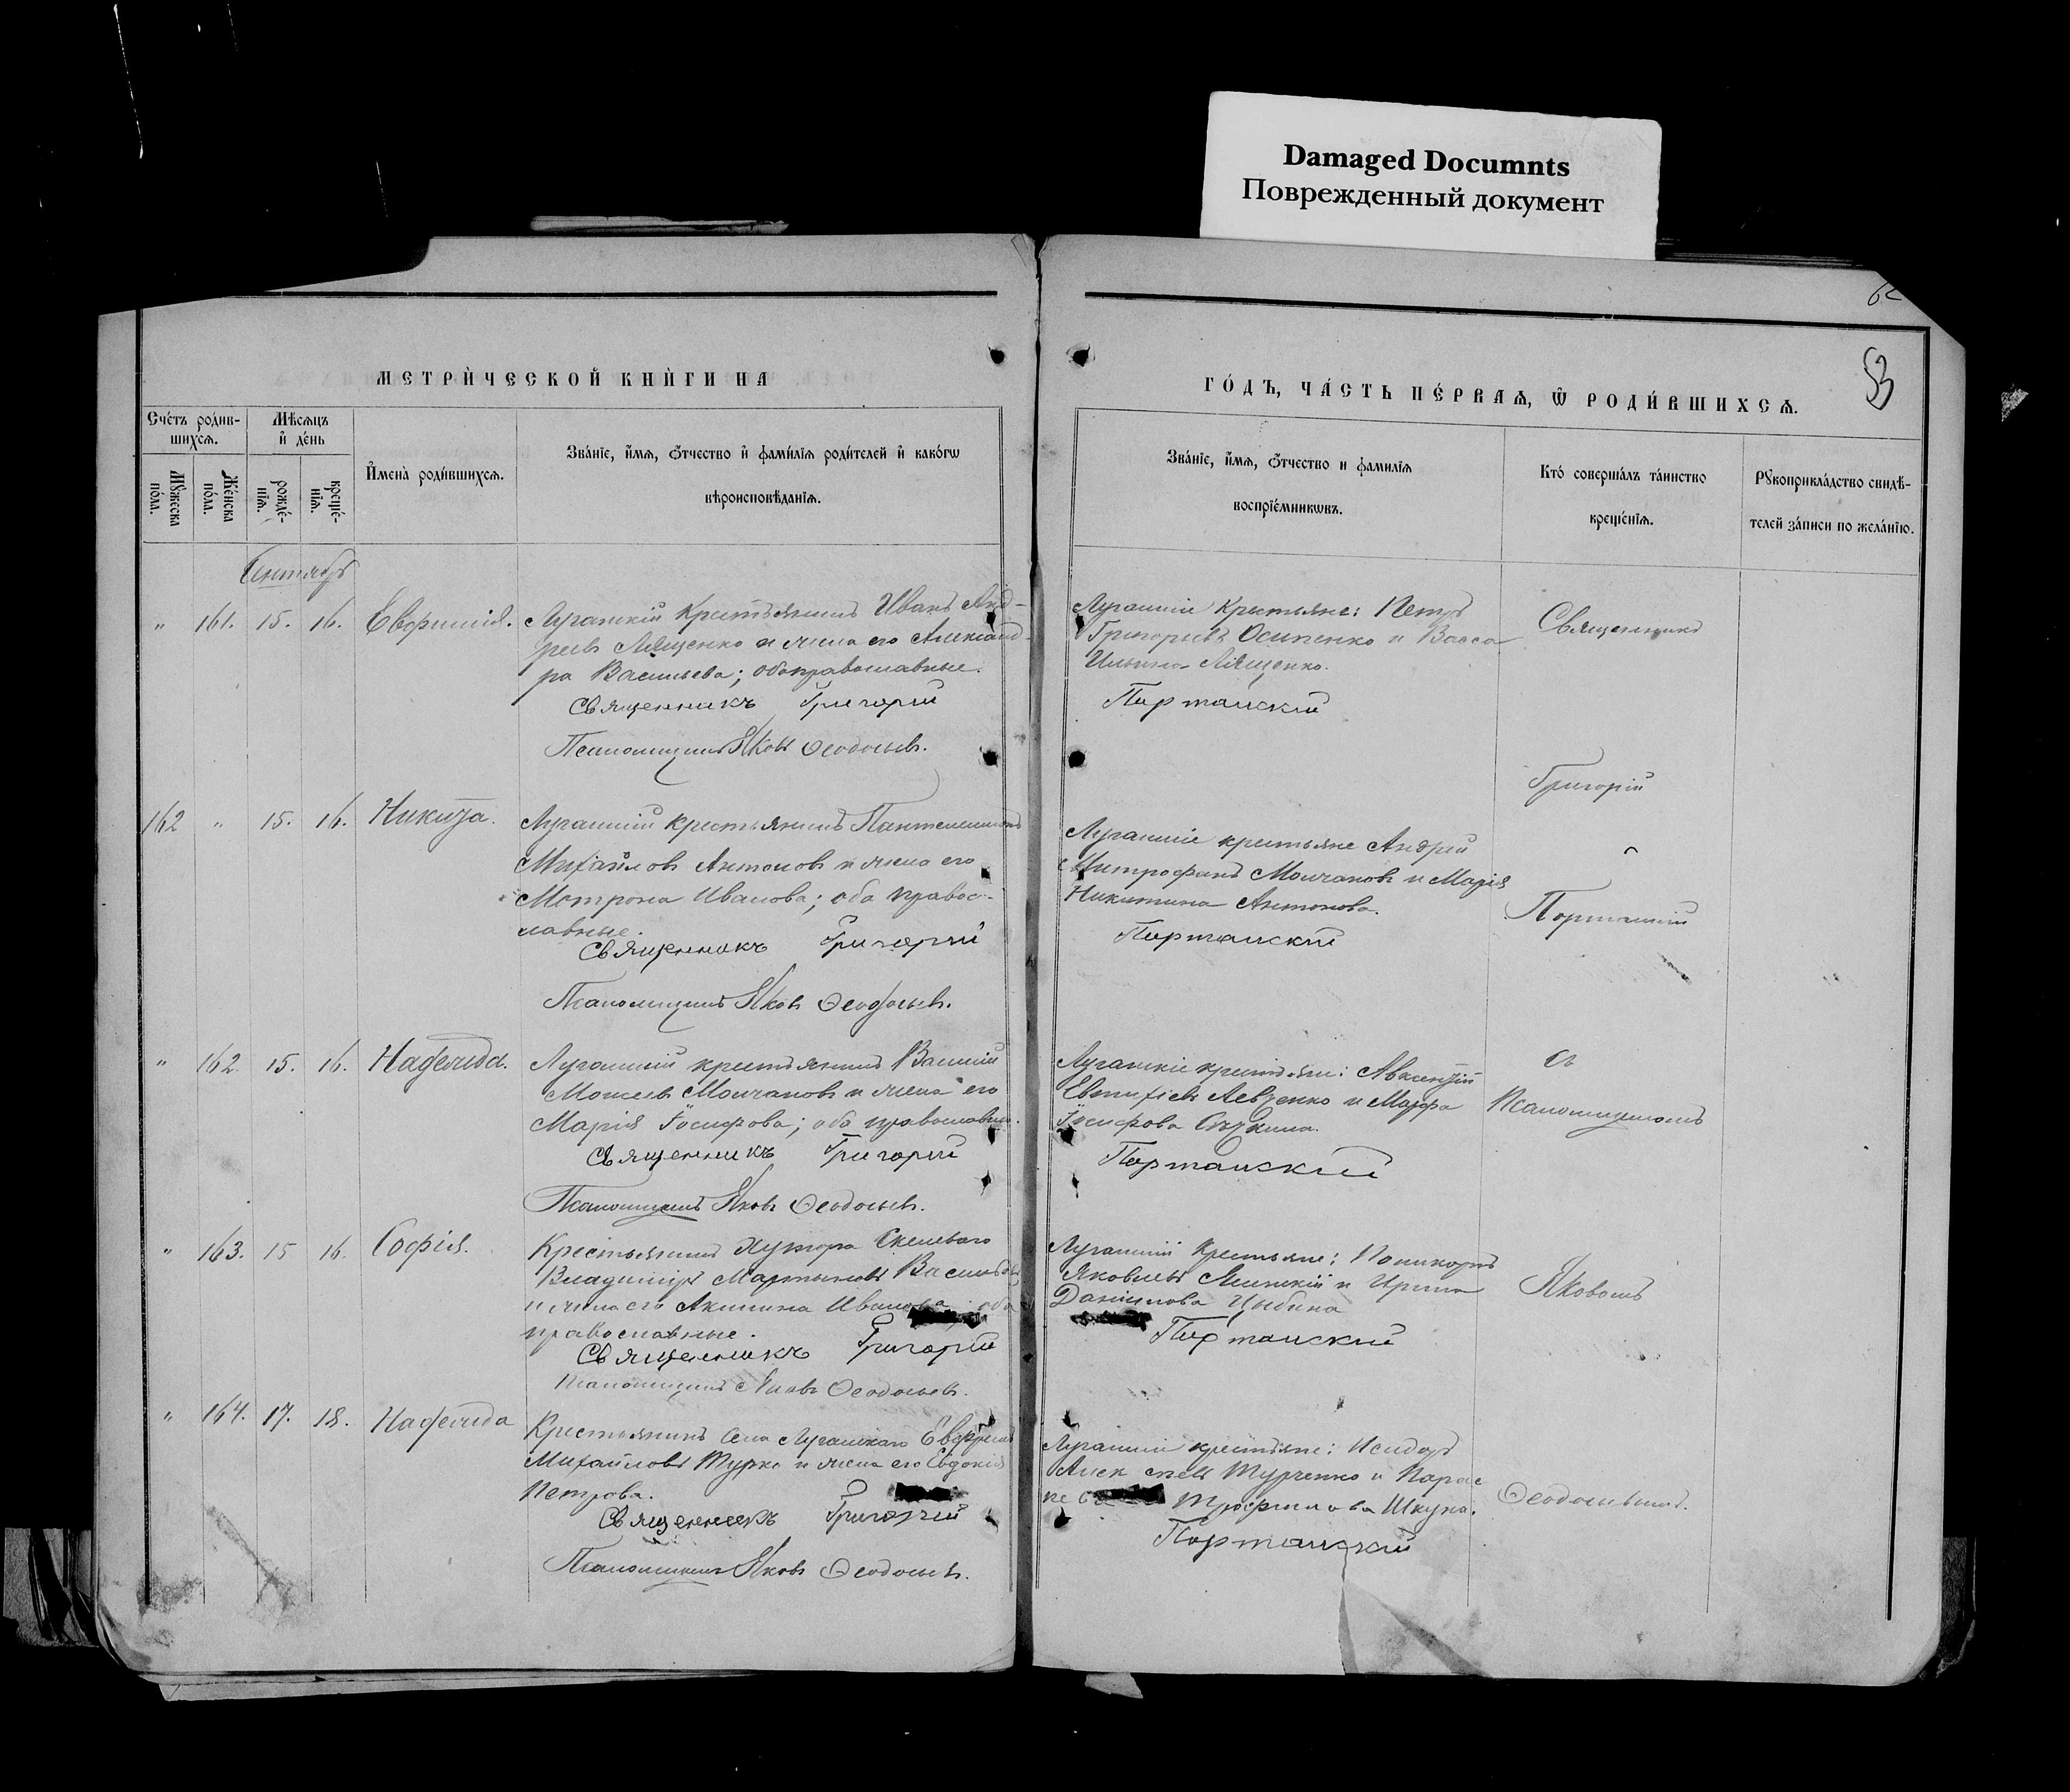 Damaged Documnts
Поврежденный документ
53
МЕТРИ́ЧЕСКОЙ КНИ́ГИ НА
ГО́ДЪ, ЧА́СТЬ ПЕ́РВАѦ, Ѡ РОДИ́ВШИХСѦ.
Сче́тъ роди́в-
шихсѧ.
Мꙋ́жеска
по́ла.
Же́нска
по́ла.
Мѣ́сѧцъ
и҆ де́нь
рожде́-
нїѧ.
креще́-
нїѧ.
И҆мена̀ роди́вшихсѧ.
Зва́нїе, и҆́мѧ, ѻ҆́тчество и҆ фами́лїѧ роди́телей и҆ како́гѡ
вѣроисповѣ́данїѧ.
Зва́нїе, и҆́мѧ, ѻ҆́тчество и фамилїѧ
воспрїе́мникѡвъ.
Кто́ соверша́лъ та́инство
креще́нїѧ.
Рꙋкоприкла́дство свидѣ́-
телей за́писи по жела́нїю.
Сентябрь
" 161. 15. 16. Евфимія.
Луганскій Крестьянинъ Иванъ Анд-
реевъ Лященко и жена его Александ-
ра Васильева; оба православные.
Священникъ Григорій
Псаломщикъ Яковъ Ѳеодосьевъ.
Луганскіе Крестьяне: Петръ
Григорьевъ Осипенко и Васса
Ильина Лященко.
Портанскій
Священникъ
Григорій
162 " 15. 16. Никита.
Луганскій крестьянинъ Пантелеимонъ
Михайловъ Антоновъ и жена его
Мотрона Иванова; оба правос-
лавные.
Священникъ Григорій
Псаломщикъ Яковъ Ѳеодосьевъ.
Луганскіе крестьяне Андрей
Митрофановъ Молчановъ и Марія
Никитина Антонова.
Портанскій
Портанскій
" 162. 15. 16. Надежда.
Луганскій крестьянинъ Василій
Моисеевъ Молчановъ и жена его
Марія Іосифова; оба православные.
Священникъ Григорій
Псаломщикъ Яковъ Ѳеодосьевъ.
Луганскіе крестьяне: Авксентій
Евтихіевъ Левченко и Марфа
Іосифова
Портанскій
съ
Псаломщикомъ
" 163. 15 16. Софія.
Крестьянинъ Хутора
Владиміръ Мартыновъ Васильевъ
и жена его Акилина Иванова; оба
православные.
Священникъ Григорій
Псаломщикъ Яковъ Ѳеодосьевъ.
Луганскій Крестьяне:
Яковлевъ и Ирина
Даніилова Цыбина
Портанскій
Яковомъ
" 164. 17. 18. Надежда
Крестьянинъ села Луганскаго Евфремъ
Михайловъ Турко и жена его Евдокія
Петрова.
Священникъ Григорій
Псаломщикъ Яковъ Ѳеодосьевъ.
Луганскіе крестьяне: Исидоръ
Турченко и Парас
кева Трофимова Шкура.
Портанскій
Ѳеодосьевымъ.